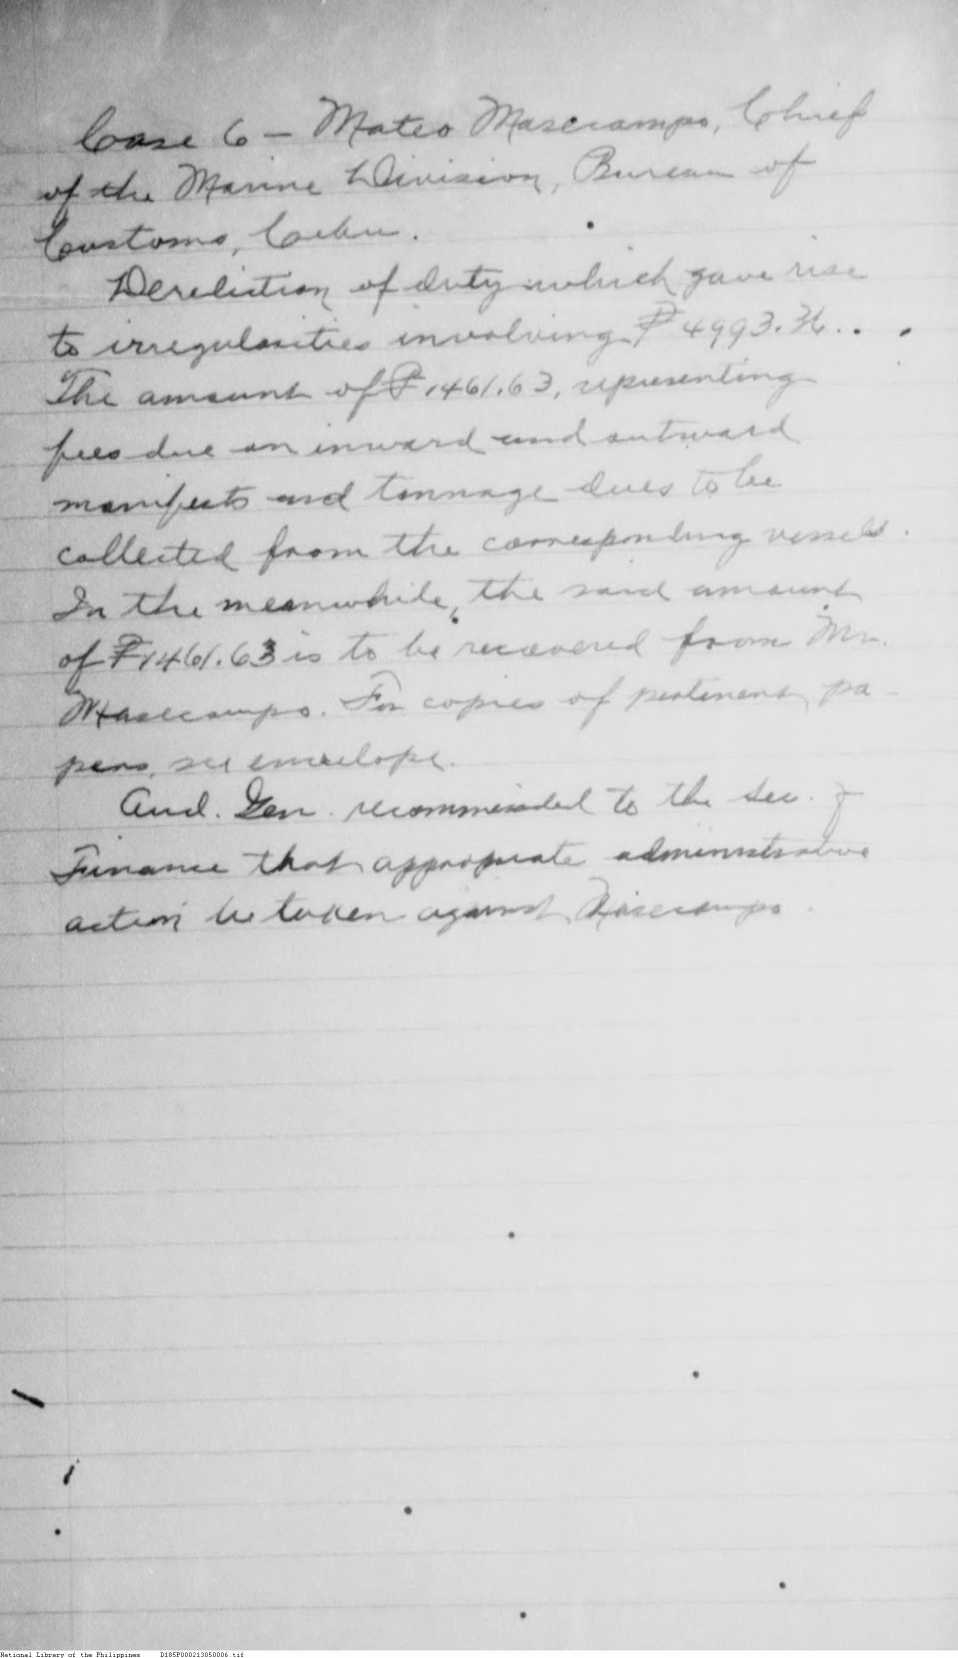 Case 6 — Mateo Masecampo, Chief
of the Marine Division, Bureau of
Customs, Cebu.
Dereliction of duty which gave rise
to irregularities involving ₱ 4993.36..
The amount of ₱1461.63, representing
fees due on inward and outward
manifests and tonnage dues to be
collected from the corresponding vessels.
In the meanwhile, the said amount
of ₱1461.63 is to be recovered from Mr.
Masecampo. For copies of pertinent pa-
pers, see envelope.
Aud. Gen. recommended to the Sec. of
Finance that appropriate administrative
action be taken against Masecampo.
National Library of the Philippines D185P000213050006.tif